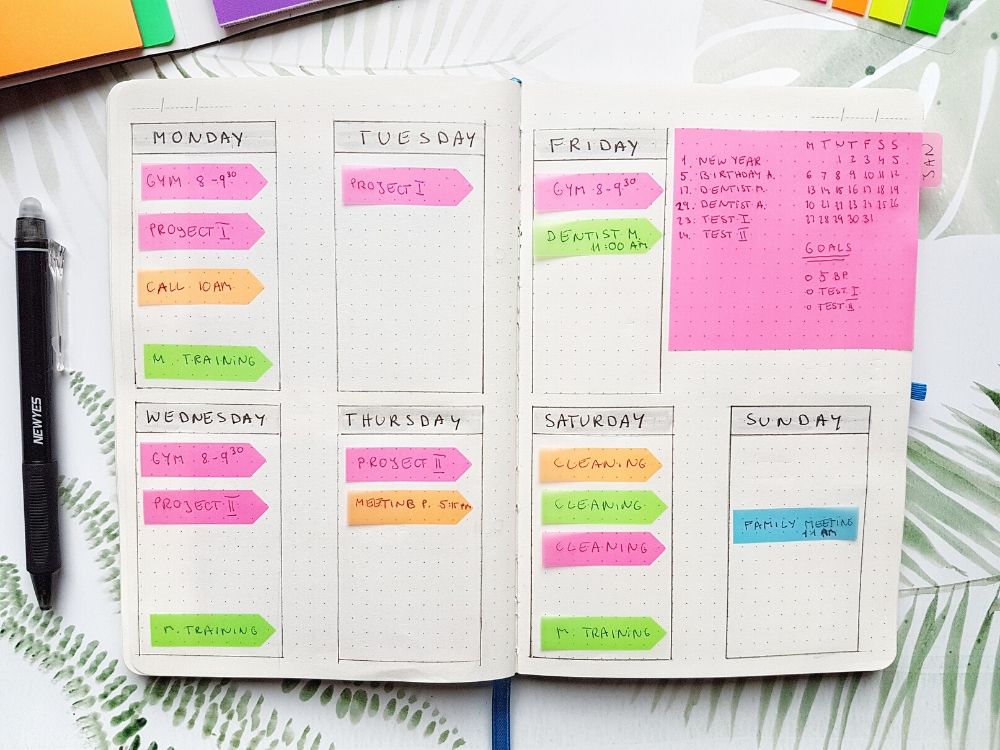 MONDAY
GYM 8-9³⁰
PROJECT I
CALL 10AM
M. TRAINING
TUESDAY
PROJECT I
WEDNESDAY
GYM 8-9³⁰
PROJECT II
M. TRAINING
THURSDAY
PROJECT II
MEETING P. 5:15 PM
FRIDAY
GYM 8-9³⁰
DENTIST M.
11:00 AM
1. NEW YEAR
5. BIRTHDAY A.
17. DENTIST M.
29. DENTIST A.
23. TEST I
24. TEST II
M T W T F S S
1 2 3 4 5
6 7 8 9 10 11 12
13 14 15 16 17 18 19
20 21 22 23 24 25 26
27 28 29 30 31
GOALS
○ 5 BP
○ TEST I
○ TEST II
JAN
SATURDAY
CLEANING
CLEANING
CLEANING
M. TRAINING
SUNDAY
FAMILY MEETING
11 AM
NEWYES